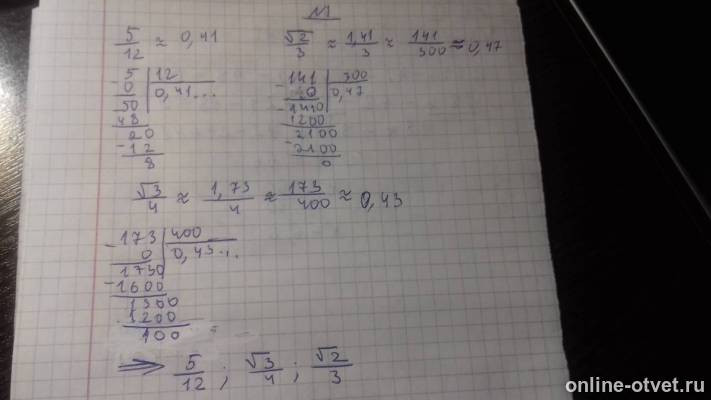 N1
5/12 ≈ 0,41
√2/3 ≈ 1,41/3 ≈ 141/300 ≈ 0,47
5 | 12
0 | 0,41...
50
48
20
- 12
8
- 141 | 300
0 | 0,47
- 1410
1200
2100
- 2100
0
√3/4 ≈ 1,73/4 ≈ 173/400 ≈ 0,43
- 173 | 400
0 | 0,43...
1730
- 1600
1300
1200
100
⇒ 5/12 ; √3/4 ; √2/3
online-otvet.ru